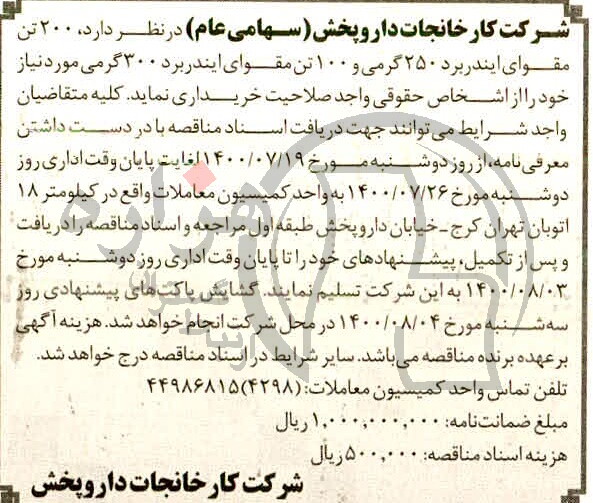 شرکت کارخانجات داروپخش (سهامی عام) در نظر دارد، ۲۰۰ تن
مقوای ایندربرد ۲۵۰ گرمی و ۱۰۰ تن مقوای ایندربرد ۳۰۰ گرمی مورد نیاز
خود را از اشخاص حقوقی واجد صلاحیت خریداری نماید. کلیه متقاضیان
واجد شرایط می‌توانند جهت دریافت اسناد مناقصه با در دست داشتن
معرفی‌نامه، از روز دوشنبه مورخ ۱۴۰۰/۰۷/۱۹ لغایت پایان وقت اداری روز
دوشنبه مورخ ۱۴۰۰/۰۷/۲۶ به واحد کمیسیون معاملات واقع در کیلومتر ۱۸
اتوبان تهران کرج - خیابان داروپخش طبقه اول مراجعه و اسناد مناقصه را دریافت
و پس از تکمیل، پیشنهادهای خود را تا پایان وقت اداری روز دوشنبه مورخ
۱۴۰۰/۰۸/۰۳ به این شرکت تسلیم نمایند. گشایش پاکت‌های پیشنهادی روز
سه‌شنبه مورخ ۱۴۰۰/۰۸/۰۴ در محل شرکت انجام خواهد شد. هزینه آگهی
بر عهده برنده مناقصه می‌باشد. سایر شرایط در اسناد مناقصه درج خواهد شد.
تلفن تماس واحد کمیسیون معاملات: (۴۲۹۸) ۴۴۹۸۶۸۱۵
مبلغ ضمانت‌نامه: ۱,۰۰۰,۰۰۰,۰۰۰ ریال
هزینه اسناد مناقصه: ۵۰۰,۰۰۰ ریال
شرکت کارخانجات داروپخش
هزاره